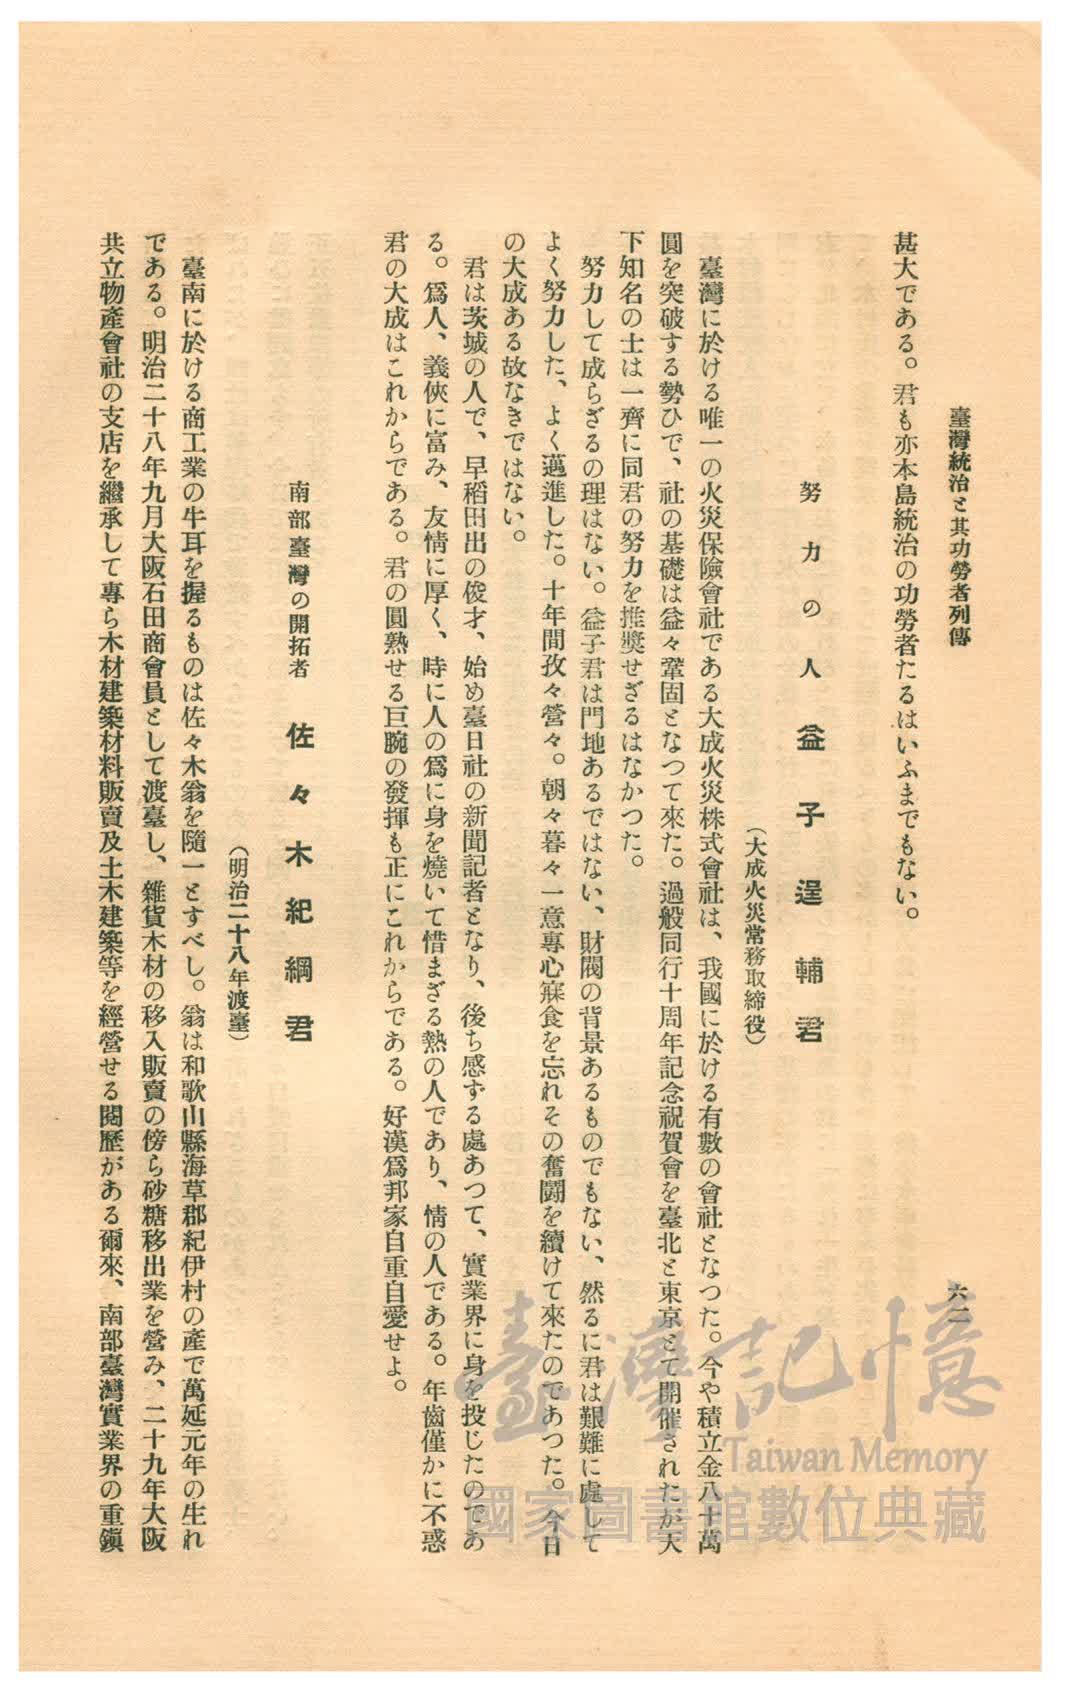 臺灣統治と其功勞者列傳
六二
甚大である。君も亦本島統治の功勞者たるはいふまでもない。
努力の人 益子逞輔君
（大成火災常務取締役）
臺灣に於ける唯一の火災保險會社である大成火災株式會社は、我國に於ける有數の會社となつた。今や積立金八十萬
圓を突破する勢ひで、社の基礎は益々鞏固となつて來た。過般同行十周年記念祝賀會を臺北と東京とで開催されたが天
下知名の士は一齊に同君の努力を推奬せざるはなかつた。
努力して成らざるの理はない。益子君は門地あるではない、財閥の背景あるものでもない、然るに君は艱難に處して
よく努力した、よく邁進した。十年間孜々營々。朝々暮々一意專心寐食を忘れその奮鬪を續けて來たのであつた。今日
の大成ある故なきではない。
君は茨城の人で、早稻田出の俊才、始め臺日社の新聞記者となり、後ち感ずる處あつて、實業界に身を投じたのであ
る。爲人、義俠に富み、友情に厚く、時に人の爲に身を燒いて惜まざる熱の人であり、情の人である。年齒僅かに不惑
君の大成はこれからである。君の圓熟せる巨腕の發揮も正にこれからである。好漢爲邦家自重自愛せよ。
南部臺灣の開拓者 佐々木紀綱君
（明治二十八年渡臺）
臺南に於ける商工業の牛耳を握るものは佐々木翁を隨一とすべし。翁は和歌山縣海草郡紀伊村の產で萬延元年の生れ
である。明治二十八年九月大阪石田商會員として渡臺し、雜貨木材の移入販賣の傍ら砂糖移出業を營み、二十九年大阪
共立物產會社の支店を繼承して專ら木材建築材料販賣及土木建築等を經營せる閱歷がある爾來、南部臺灣實業界の重鎭
臺灣記憶
Taiwan Memory
國家圖書館數位典藏